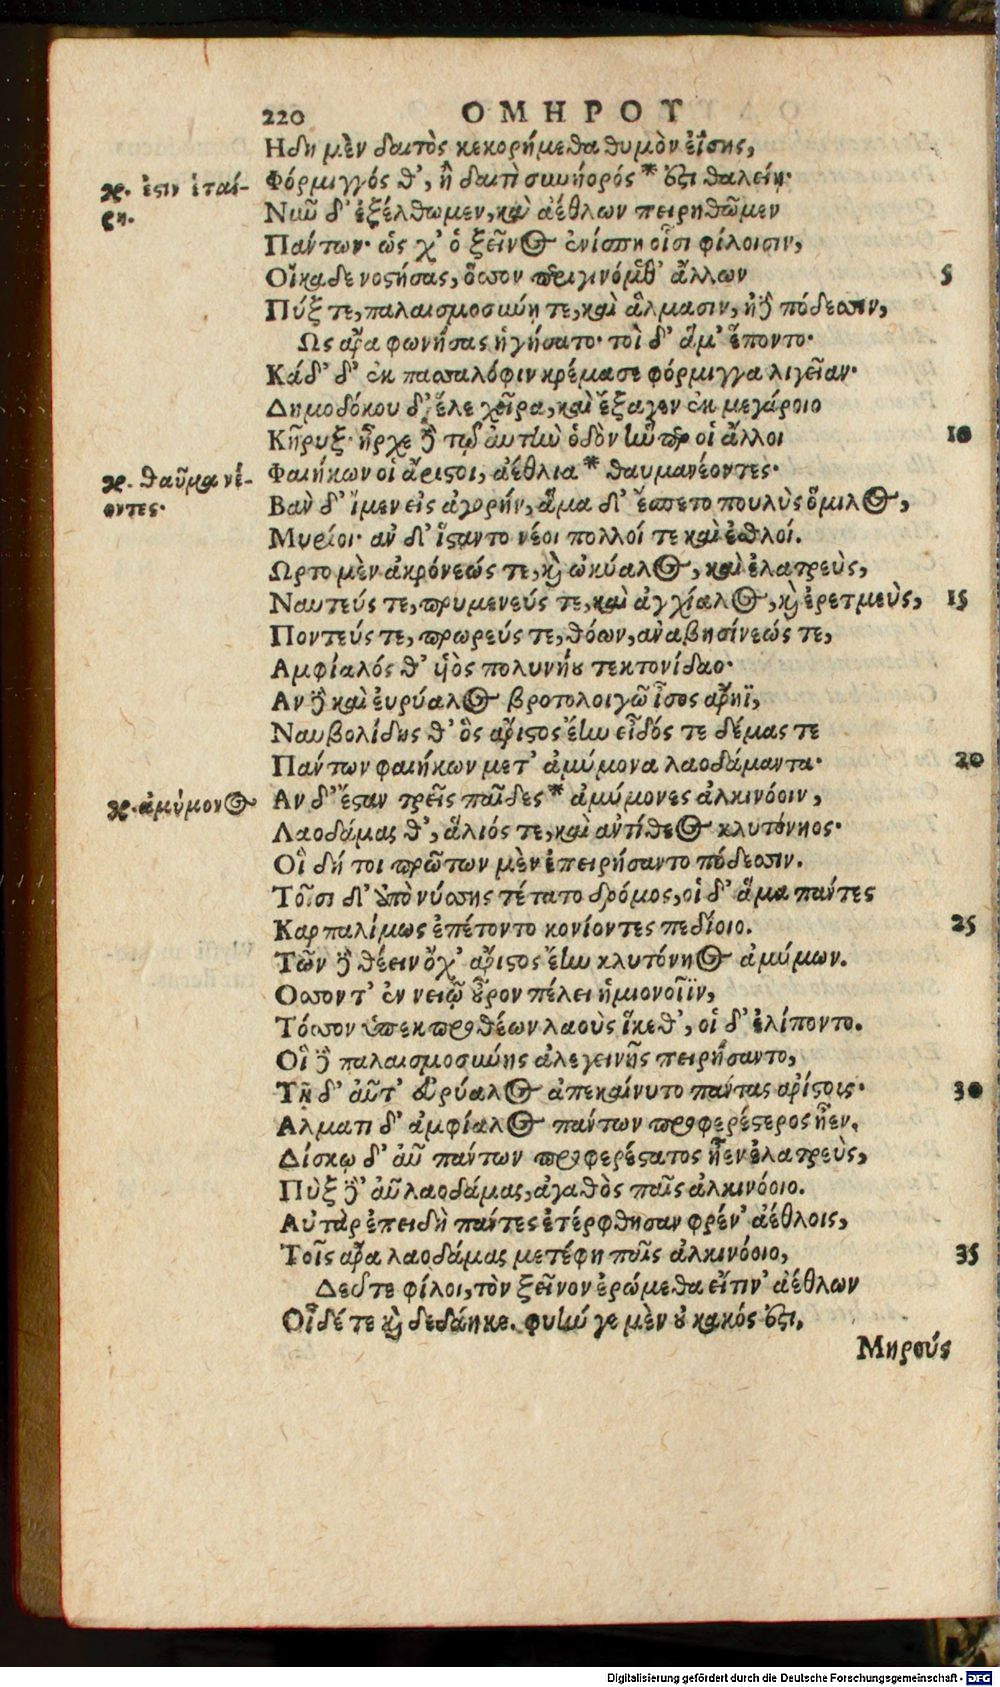 220 ΟΜΗΡΟΥ
Ηδη μὲν δαιτὸς κεκορήμεθα θυμὸν ἐΐσης,
γρ. ἐστιν ἑταί-
ρη.
Φόρμιγγός θ', ἣ δαιτὶ συνήορός * ἐστι θαλείῃ·
Νῦν δ' ἐξέλθωμεν, καὶ ἀέθλων πειρηθῶμεν
Πάντων· ὥς χ' ὁ ξεῖνος ἐνίσπῃ οἷσι φίλοισιν,
Οἴκαδε νοστήσας, ὅσσον περιγινόμεθ' ἄλλων 5
Πύξ τε, παλαισμοσύνῃ τε, καὶ ἅλμασιν, ἠδὲ πόδεσσιν,
Ως ἄρα φωνήσας ἡγήσατο· τοὶ δ' ἅμ' ἕποντο·
Κάδ' δ' ἐκ πασσαλόφιν κρέμασε φόρμιγγα λιγεῖαν·
Δημοδόκου δ' ἕλε χεῖρα, καὶ ἔξαγεν ἐκ μεγάροιο
Κῆρυξ· ἦρχε δὲ τῷ αὐτὴν ὁδὸν ἣν περ οἱ ἄλλοι 10
γρ. θαῦμα νέ-
οντες·
Φαιήκων οἱ ἄριστοι, ἀέθλια * θαυμανέοντες·
Βὰν δ' ἴμεν εἰς ἀγορήν, ἅμα δ' ἕσπετο πουλὺς ὅμιλος,
Μυρίοι· ἀν δ' ἵσταντο νέοι πολλοί τε καὶ ἐσθλοί.
Ωρτο μὲν ἀκρόνεώς τε, καὶ ὠκύαλος, καὶ ἐλατρεὺς,
Ναυτεύς τε, πρυμενεύς τε, καὶ ἀγχίαλος, καὶ ἐρετμεὺς, 15
Ποντεύς τε, πρωρεύς τε, θόων, ἀναβησίνεώς τε,
Αμφίαλός θ' ὑὸς πολυνήου τεκτονίδαο·
Αν δὲ καὶ ἐυρύαλος βροτολοιγῷ ἶσος ἄρηϊ,
Ναυβολίδης θ' ὃς ἄριστος ἔην εἶδός τε δέμας τε
Πάντων φαιήκων μετ' ἀμύμονα λαοδάμαντα· 20
γρ. ἀμύμονος
Αν δ' ἔσταν τρεῖς παῖδες * ἀμύμονες ἀλκινόοιν,
Λαοδάμας θ', ἅλιός τε, καὶ ἀντίθεος κλυτόνηος·
Οἳ δή τοι πρῶτων μὲν ἐπειρήσαντο πόδεσσιν.
Τοῖσι δ' ἀπὸ νύσσης τέτατο δρόμος, οἱ δ' ἅμα πάντες
Καρπαλίμως ἐπέτοντο κονίοντες πεδίοιο. 25
Τῶν δὲ θέειν ὄχ' ἄριστος ἔην κλυτόνηος ἀμύμων.
Οσσον τ' ἐν νειῷ οὖρον πέλει ἡμιονοῖϊν,
Τόσσον ὑπεκπροθέων λαοὺς ἵκεθ', οἱ δ' ἐλίποντο.
Οἳ δὲ παλαισμοσύνης ἀλεγεινῆς πειρήσαντο,
Τῇ δ' αὖτ' εὐρύαλος ἀπεκαίνυτο πάντας ἀρίστοις· 30
Αλματι δ' ἀμφίαλος πάντων προφερέστερος ἦεν.
Δίσκῳ δ' αὖ πάντων προφερέστατος ἦεν ἐλατρεὺς,
Πὺξ δ' αὖ λαοδάμας, ἀγαθὸς παῖς ἀλκινόοιο.
Αὐτὰρ ἐπειδὴ πάντες ἐτέρφθησαν φρέν' ἀέθλοις,
Τοῖς ἄρα λαοδάμας μετέφη παῖς ἀλκινόοιο, 35
Δεῦτε φίλοι, τὸν ξεῖνον ἐρώμεθα εἴτιν' ἀέθλων
Οἶδέ τε καὶ δεδάηκε. φυήν γε μὲν οὐ κακός ἐστι,
Μηρούς
Digitalisierung gefördert durch die Deutsche Forschungsgemeinschaft - DFG